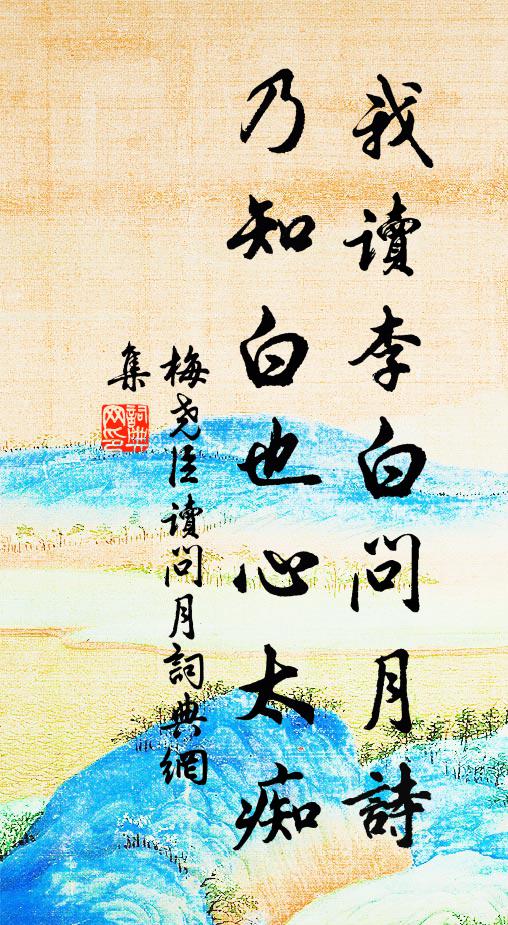 我讀李白問月詩
乃知白也心太痴
梅堯臣讀問月詞典網
集
詞典網印